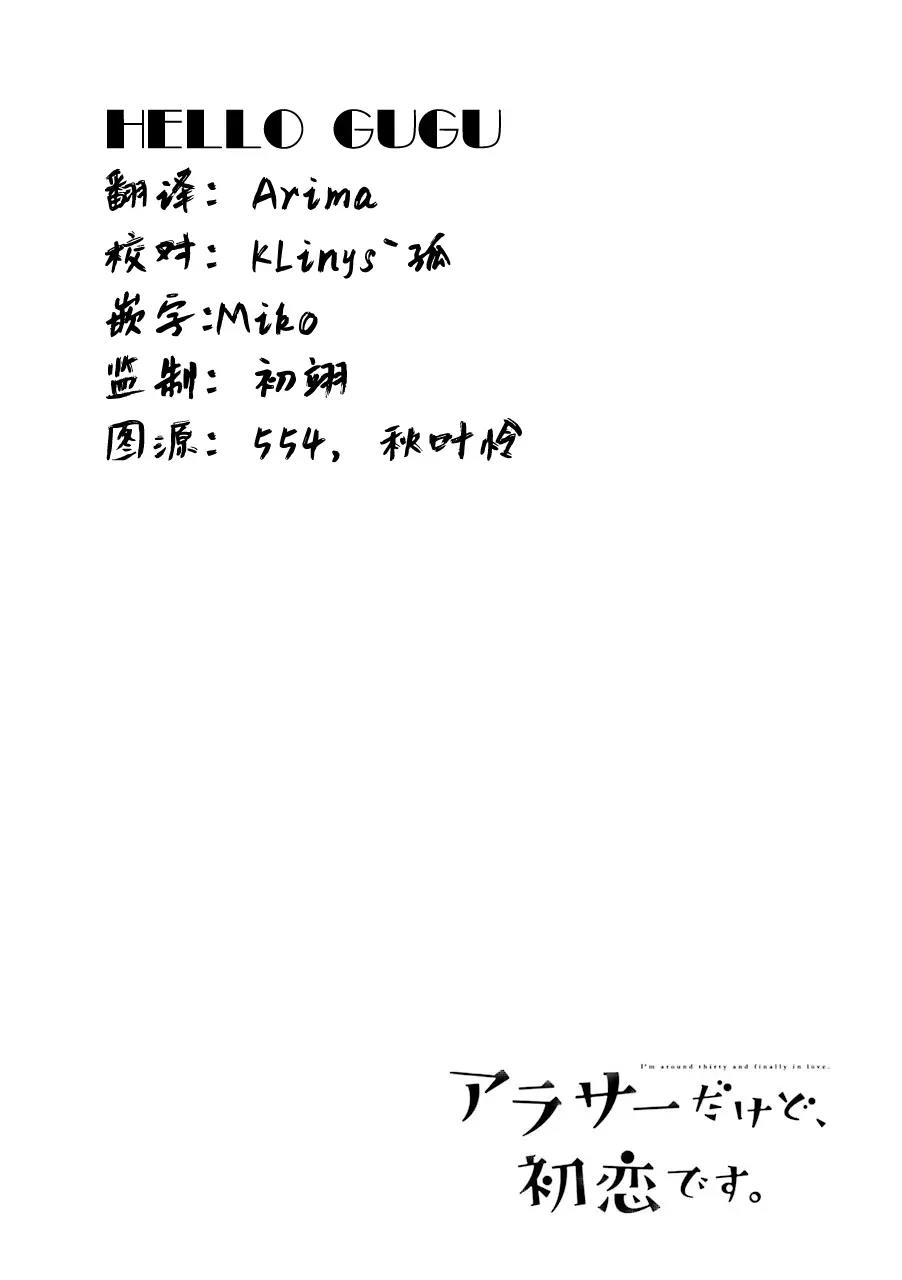 HELLO GUGU
翻译： Arima
校对： KLinys`孤
嵌字:Miko
监制： 初翊
图源： 554， 秋叶怜
I'm around thirty and finally in love.
アラサーだけど、
初恋です。